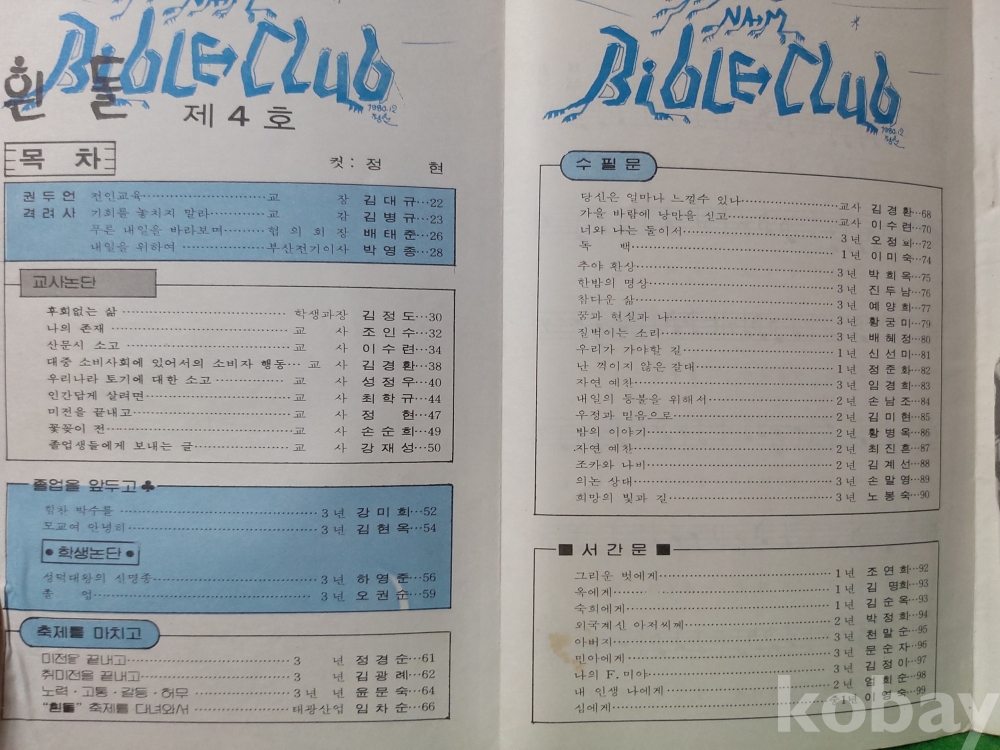 Bible Club
1980.12
흰돌
제4호
목 차
컷: 정 현
권두언 전인교육 교 장 김대규 22
격려사 기회를 놓치지 말라 교 감 김병규 23
푸른 내일을 바라보며 협의회장 배태준 26
내일을 위하여 부산전기이사 박영종 28
교사논단
후회없는 삶 학생과장 김정도 30
나의 존재 교 사 조인수 32
산문시 소고 교 사 이수련 34
대중 소비사회에 있어서의 소비자 행동 교 사 김경환 38
우리나라 토기에 대한 소고 교 사 성정우 40
인간답게 살려면 교 사 최학규 44
미전을 끝내고 교 사 정 현 47
꽃꽂이 전 교 사 손순희 49
졸업생들에게 보내는 글 교 사 강재성 50
졸업을 앞두고 ♣
힘찬 박수를 3년 강미희 52
모교여 안녕히 3년 김현옥 54
• 학생논단 •
성덕대왕의 신명종 3년 하영준 56
졸 업 3년 오권순 59
축제를 마치고
미전을 끝내고 3 년 정경순 61
취미전을 끝내고 3 년 김광례 62
노력·고통·갈등·허무 3 년 년 윤문숙 64
“흰돌” 축제를 다녀와서 태광산업 임차순 66
Bible Club
1980.12
수필문
당신은 얼마나 느낄수 있나 교사 김경환 68
가을 바람에 낭만을 싣고 교사 이수련 70
너와 나는 둘이서 3년 오정화 72
독 백 1년 이미숙 74
추야 환상 3년 박희옥 75
한밤의 명상 3년 진두남 76
참다운 삶 3년 예양희 77
꿈과 현실과 나 3년 황궁미 79
질벅이는 소리 3년 배혜정 80
우리가 가야할 길 1년 신선미 81
난 꺽이지 않은 갈대 1년 정준화 82
자연 예찬 3년 임경희 83
내일의 등불을 위해서 2년 손남조 84
우정과 믿음으로 2년 김미현 85
밤의 이야기 2년 황병옥 86
자연 예찬 2년 최진흔 87
조카와 나비 2년 김계선 88
의논 상대 3년 손말영 89
희망의 빛과 길 3년 노봉숙 90
■ 서간문 ■
그리운 벗에게 1년 조연희 92
옥에게 1년 김명희 93
숙희에게 1년 김순옥 93
외국계신 아저씨께 2년 박정화 94
아버지 3년 천말순 95
민아에게 3년 문순자 96
나의 F.미야 3년 김정아 97
내 인생 나에게 2년 엄희순 98
심에게 중1년 이영숙 99
kobay